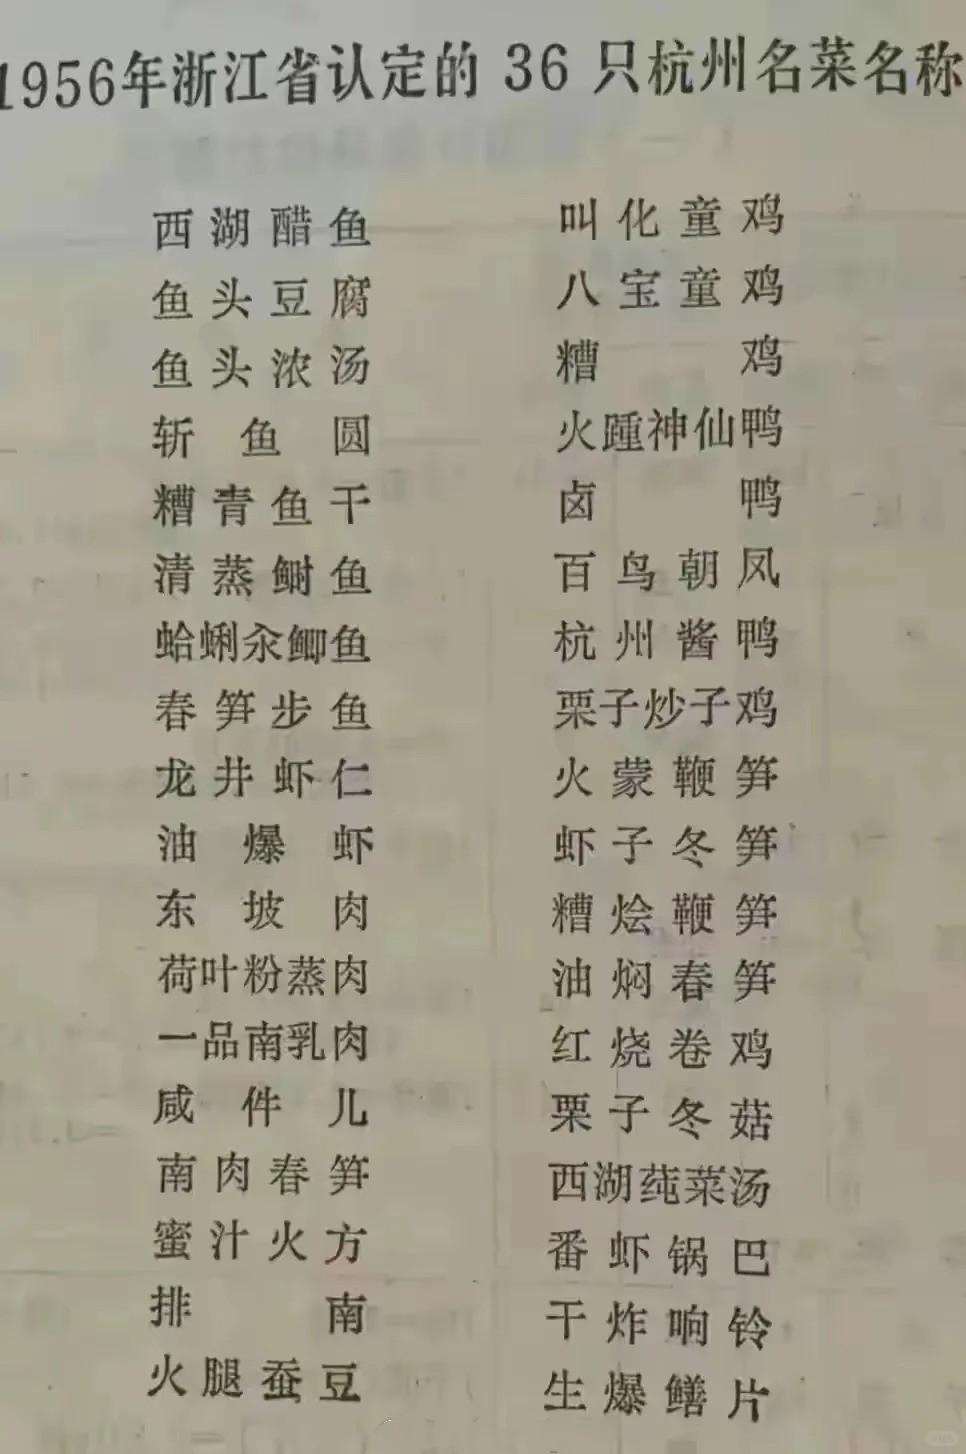 1956年浙江省认定的 36 只杭州名菜名称
西湖醋鱼
鱼头豆腐
鱼头浓汤
斩鱼圆
糟青鱼干
清蒸鲥鱼
蛤蜊汆鲫鱼
春笋步鱼
龙井虾仁
油爆虾
东坡肉
荷叶粉蒸肉
一品南乳肉
咸件儿
南肉春笋
蜜汁火方
排南
火腿蚕豆
叫化童鸡
八宝童鸡
糟鸡
火踵神仙鸭
卤鸭
百鸟朝凤
杭州酱鸭
栗子炒子鸡
火蒙鞭笋
虾子冬笋
糟烩鞭笋
油焖春笋
红烧卷鸡
栗子冬菇
西湖莼菜汤
番虾锅巴
干炸响铃
生爆鳝片